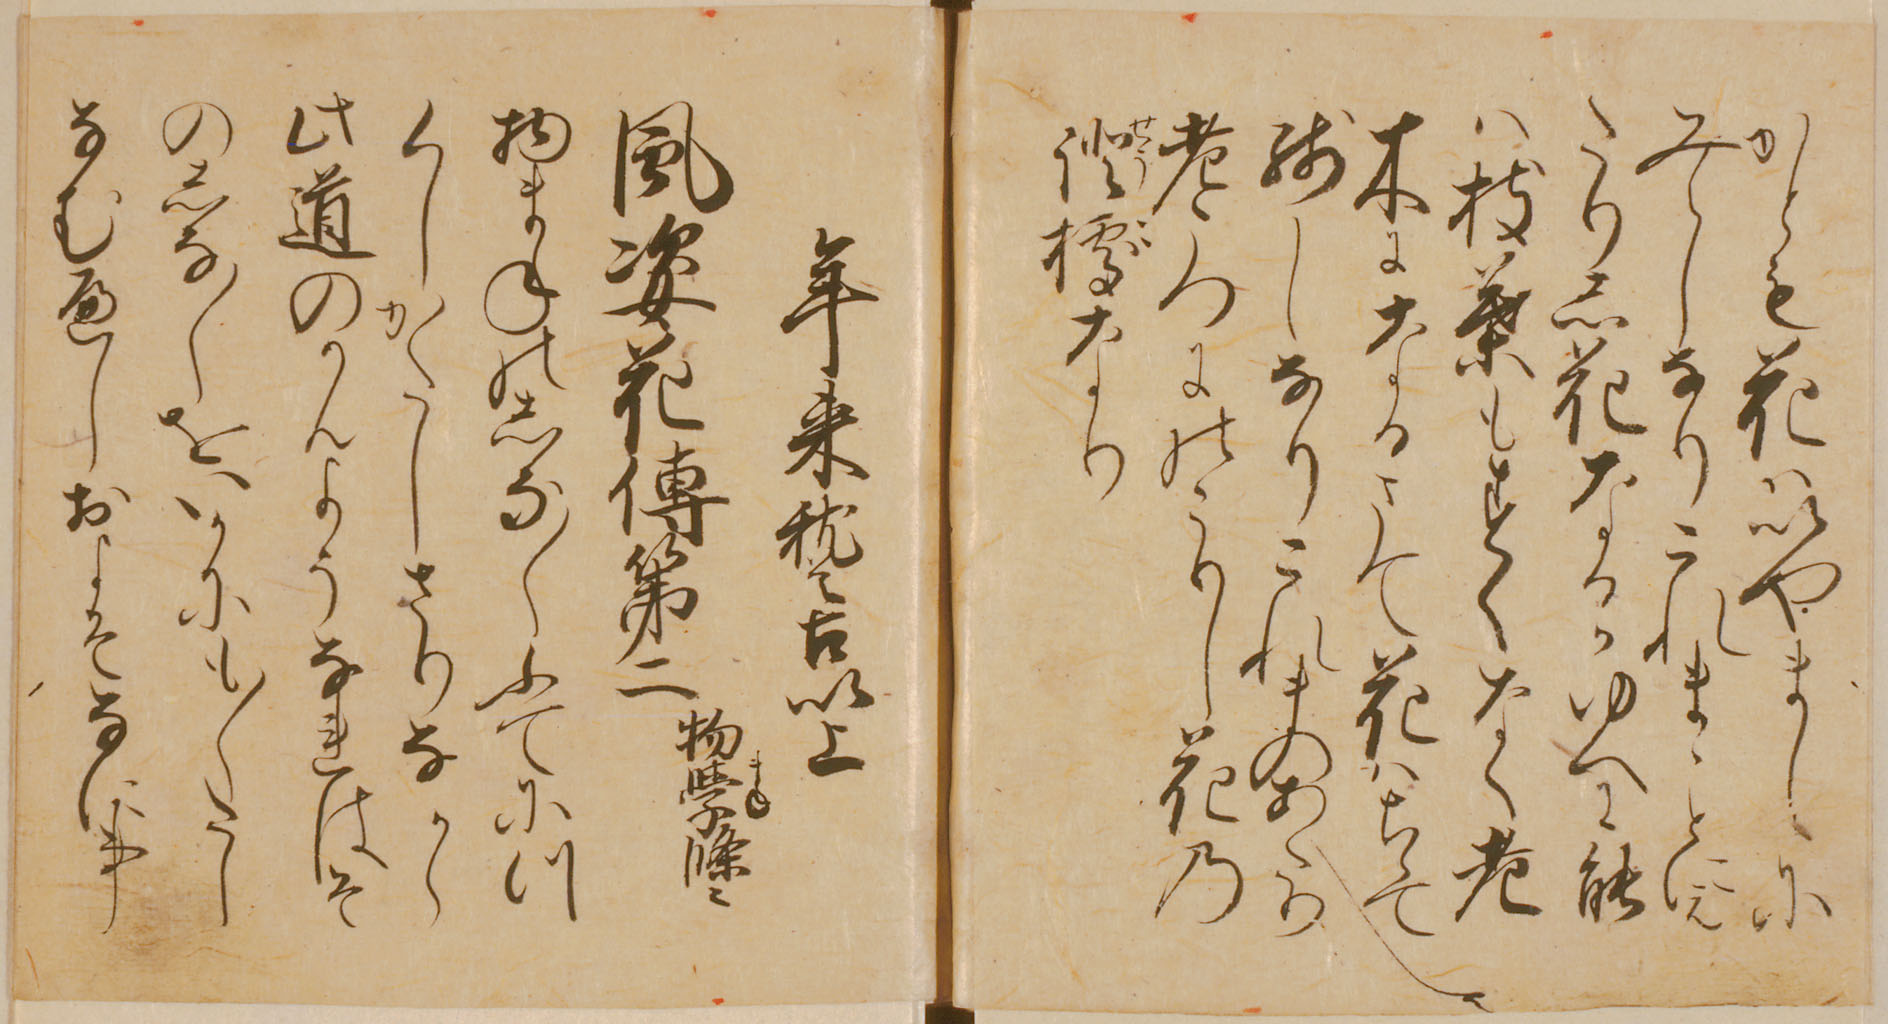 かとも花はいやましに
みえしなりこれまことに得
たりし花なるかゆへに能
は枝葉もすくなく老
木になるまて花はちらて
残しなりこれまのあたり
老こつにのこりし花乃
證據なり
せうこ
年来稽古以上
風姿花傳第二
物學條々
まね
物まねのしな〳〵ふてにつ
くしかたしさりなから
此道のかんようなれはその
しな〳〵をいかにも〳〵たし
なむへしおよそなに事